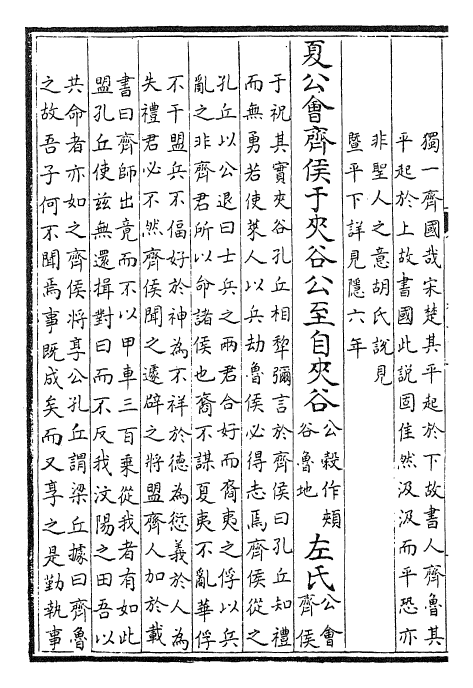 獨一齊國哉宋楚其平起於下故書人齊魯其
平起於上故書國此説固佳然汲汲而平恐亦
非聖人之意胡氏說見
暨平下詳見隱六年
夏公會齊侯于夾谷公至自夾谷公穀作頰谷魯地左氏公會齊侯
于祝其實夾谷孔丘相犂彌言於齊侯曰孔丘知禮
而無勇若使萊人以兵劫魯侯必得志焉齊侯從之
孔丘以公退曰士兵之兩君合好而裔夷之俘以兵
亂之非齊君所以命諸侯也裔不謀夏夷不亂華俘
不干盟兵不偪好於神為不祥於德為愆義於人為
失禮君必不然齊侯聞之遽辟之將盟齊人加於載
書曰齊師出竟而不以甲車三百乘從我者有如此
盟孔丘使兹無還揖對曰而不反我汶陽之田吾以
共命者亦如之齊侯將享公孔丘謂梁丘據曰齊魯
之故吾子何不聞焉事既成矣而又享之是勤執事